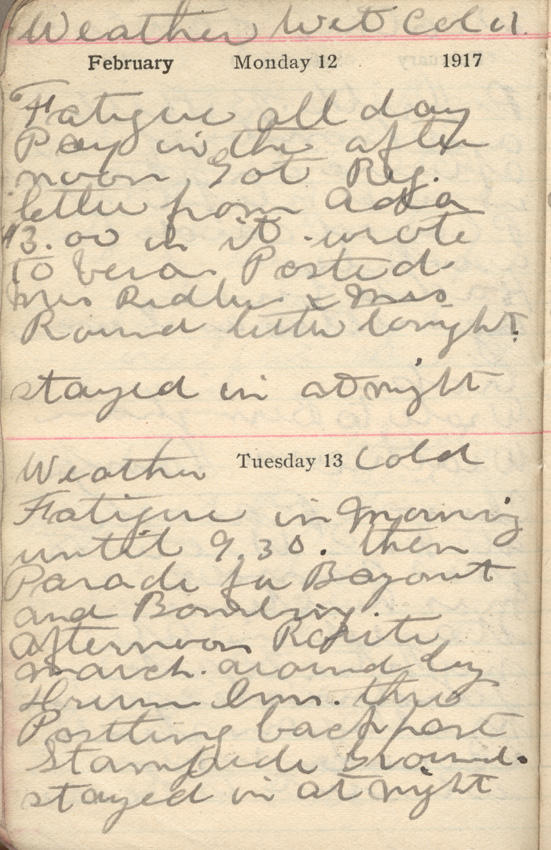 Weather Wet Cold.
February Monday 12 1917
Fatigue all day
Pay in the after
noon. Got Reg.
letter from Ada
$3.00 in it. wrote
to Vera. Posted
Mrs Ridler & Mrs
Round letter tonight.
stayed in at night
Weather Tuesday 13 Cold
Fatigue in Morning
until 9.30. then
Parade for Bayont
and Bombing
afternoon Route
march. around by
Drum Inn. thro
Postling back past
Stampede Ground.
stayed in at night